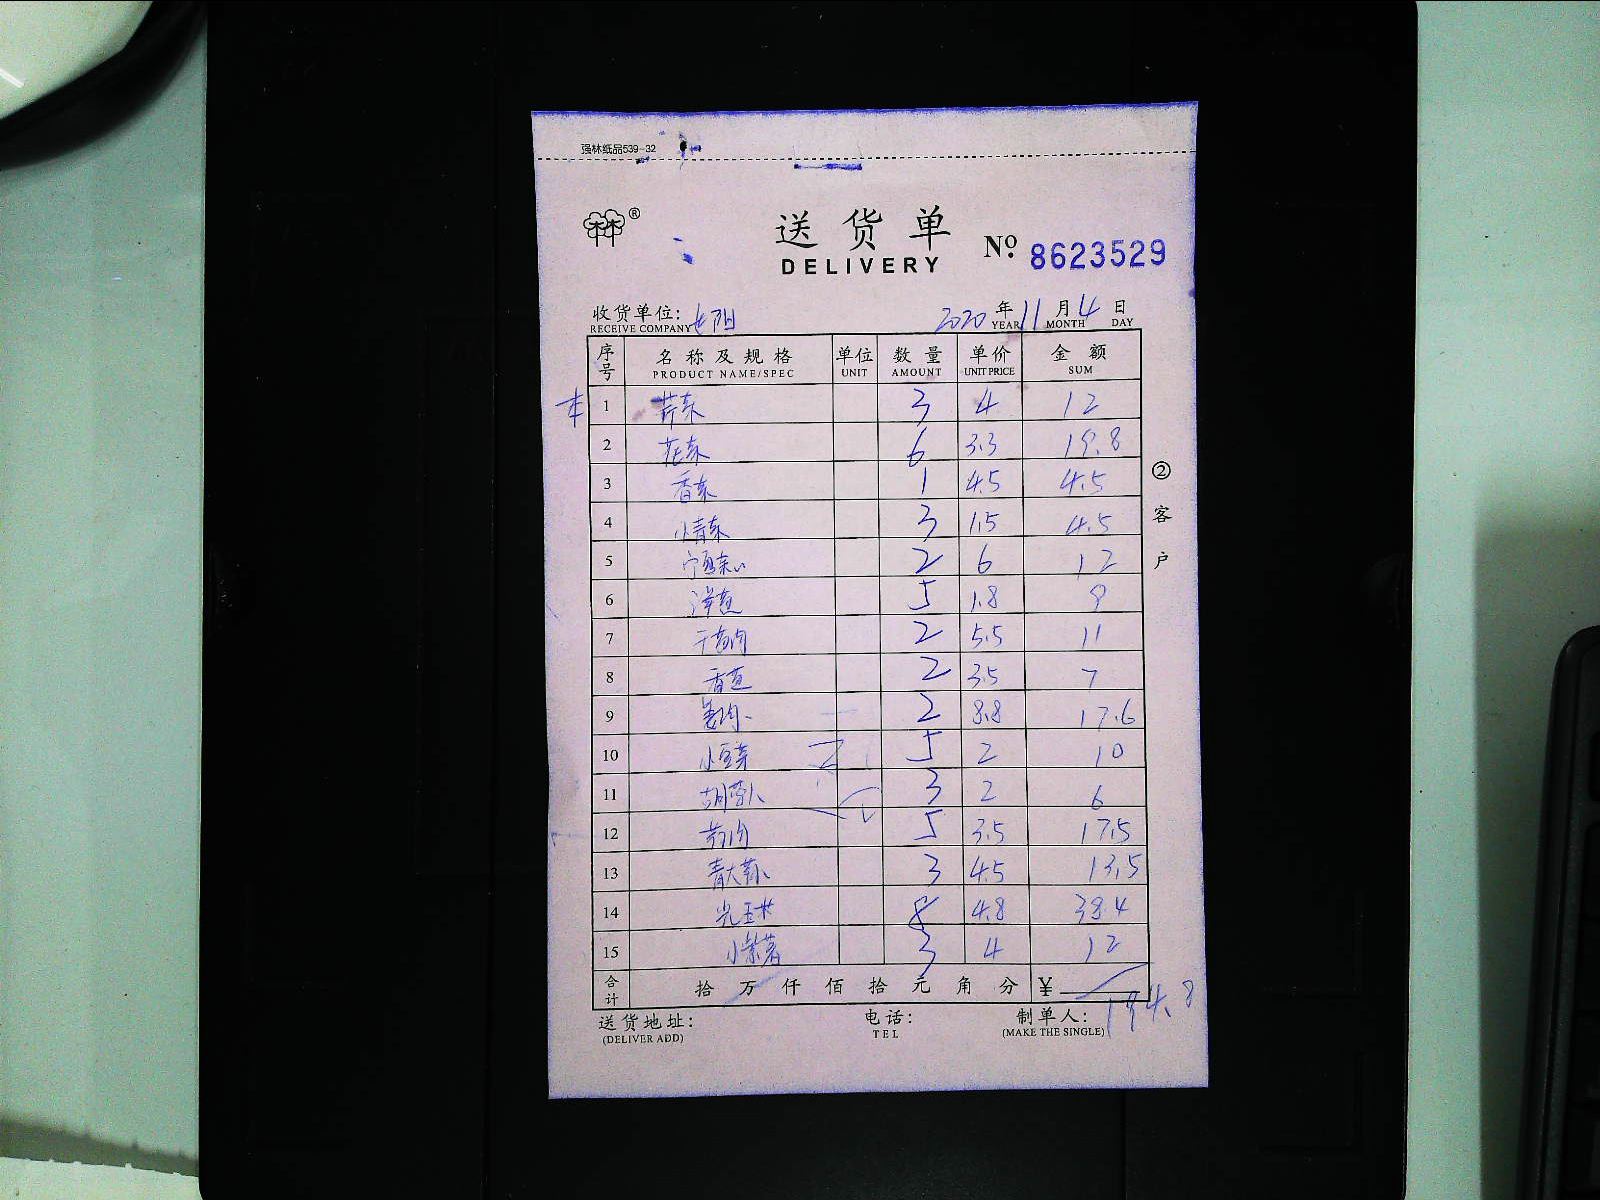 强林纸品539-32
林林 ®
送货单
DELIVERY
№ 8623529
收货单位: 2020 年 11 月 4 日
RECEIVE COMPANY YEAR MONTH DAY
序号 名称及规格 单位 数量 单价 金额
PRODUCT NAME/SPEC UNIT AMOUNT UNIT PRICE SUM
1 芹菜 3 4 12
2 花菜 6 3.3 19.8
3 香菜 1 4.5 4.5
4 小青菜 3 1.5 4.5
5 宁夏菜心 2 6 12
6 洋葱 5 1.8 9
7 2 5.5 11
8 香葱 2 3.5 7
9 姜肉 2 8.8 17.6
10 小豆芽 5 2 10
11 胡萝卜 3 2 6
12 5 3.5 17.5
13 3 4.5 13.5
14 光玉米 8 4.8 38.4
15 小紫薯 3 4 12
合计 拾 万 仟 佰 拾 元 角 分 ¥
194.8
送货地址: 电话: 制单人:
(DELIVER ADD) TEL (MAKE THE SINGLE)
② 客户